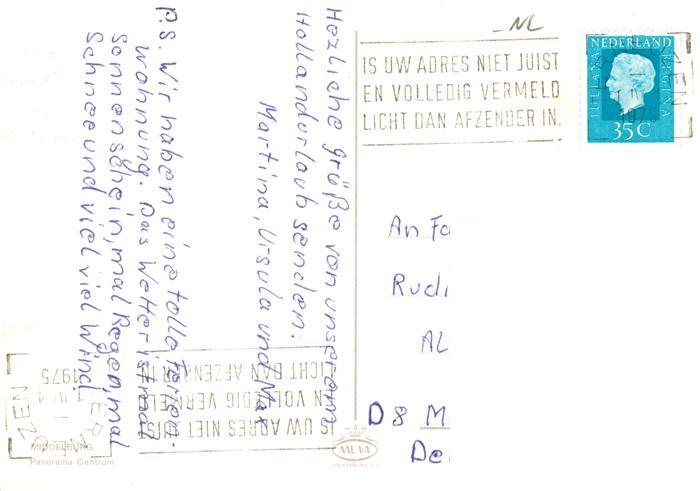 Herzliche grüße von unserem
Hollandurlaub senden:
Martina, Ursula und Max
P.S. Wir haben eine tolle Ferien-
wohnung. Das Wetter ist mal
Sonnenschein, mal Regen, mal
Schnee und viel viel Wind.
NL
IS UW ADRES NIET JUIST
EN VOLLEDIG VERMELD
LICHT DAN AFZENDER IN.
NEDERLAND
JULIANA REGINA
35 C
1975
ZEN
An Fa
Rudi
AL
D 8 M
De
IS UW ADRES NIET JUIST
EN VOLLEDIG VERMELD
LICHT DAN AFZENDER IN
ZEN
IV
1975
MIDDELBURG
Panorama Centrum
MUVA
VALKENBURG